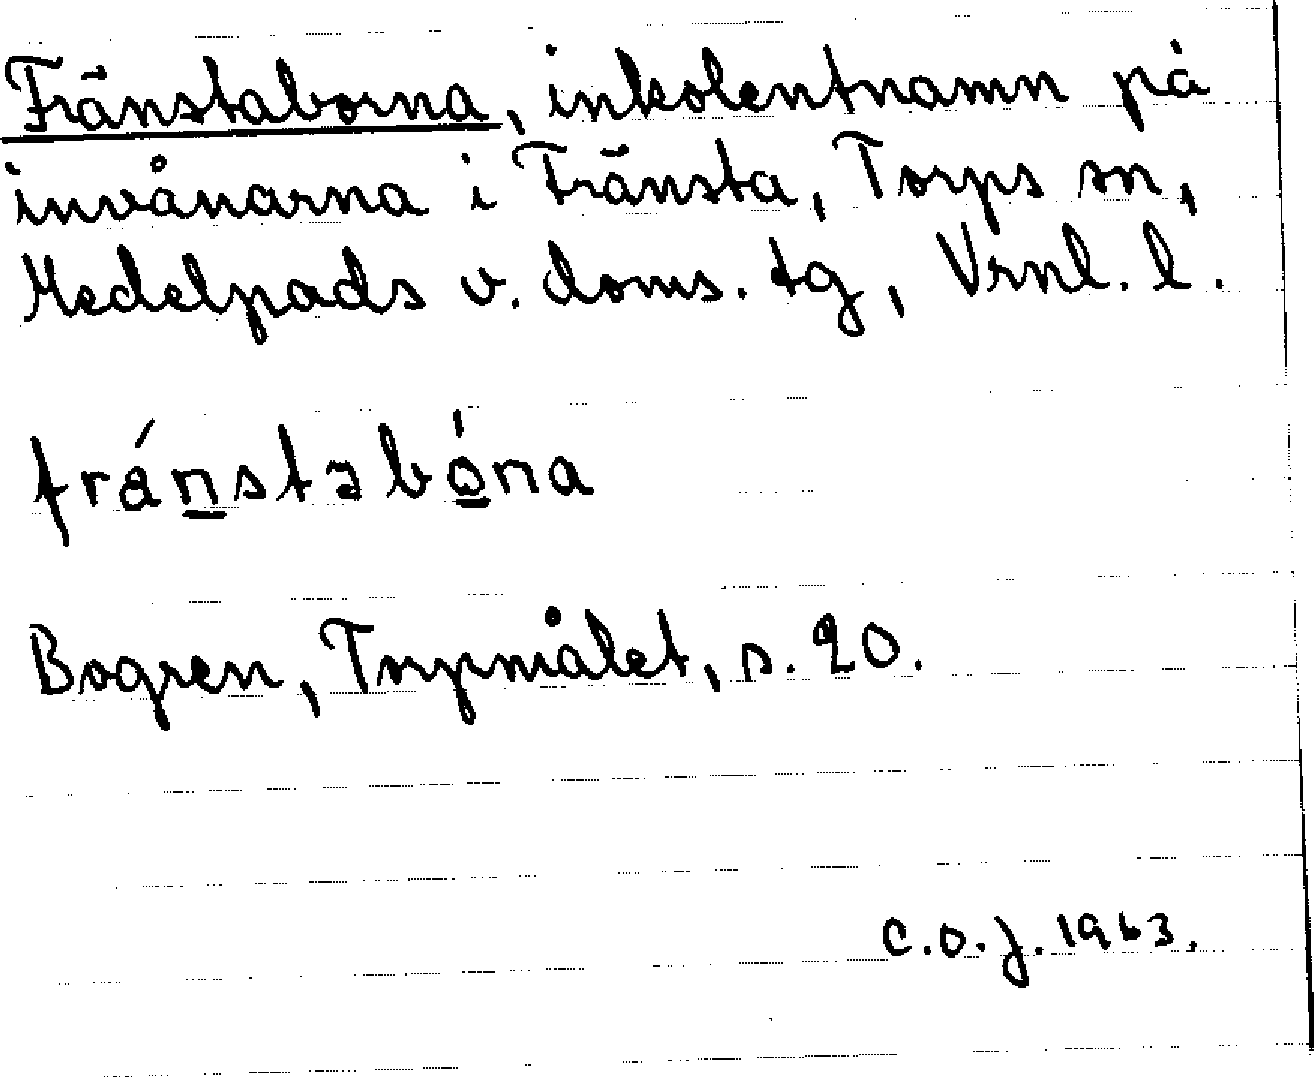 Fränstaborna, inkolentnamn på
invånarna i Fränsta, Torps sn,
Medelpads v. doms. tg, Vrnl. l.
fránstabóna
Bogren, Torpmålet, s. 20.
C.O.J. 1963.